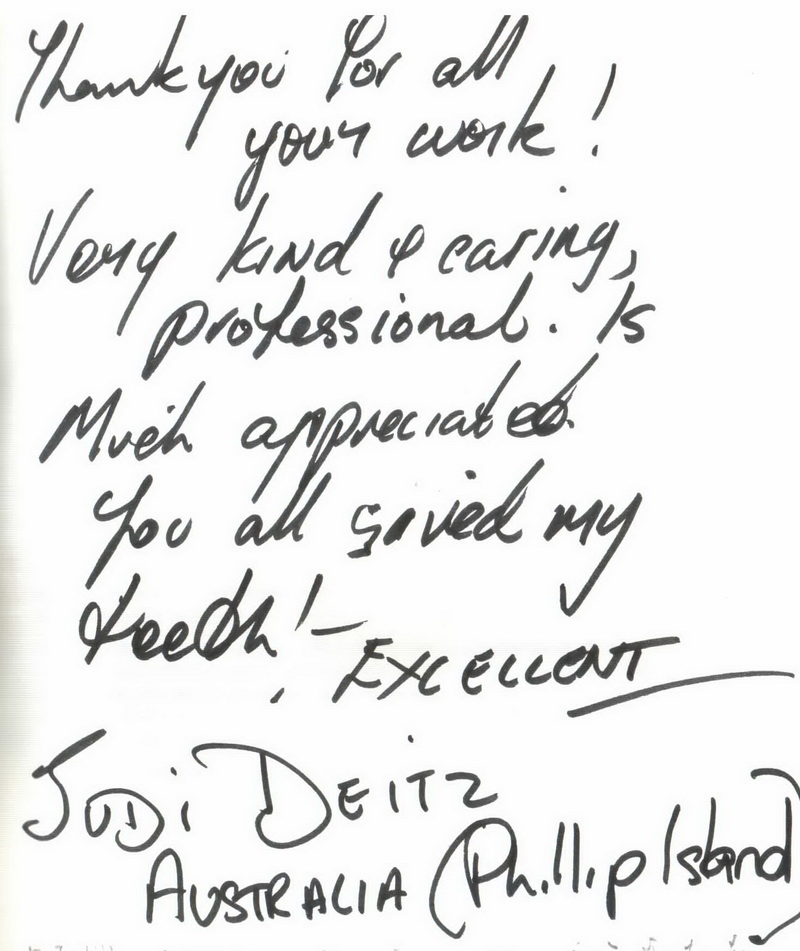 Thankyou for all
your work!
Very kind & caring,
professional. Is
Much appreciated.
You all saved my
teeth! - EXCELLENT
JUDi DEITZ
AUSTRALIA (Phillip Island)